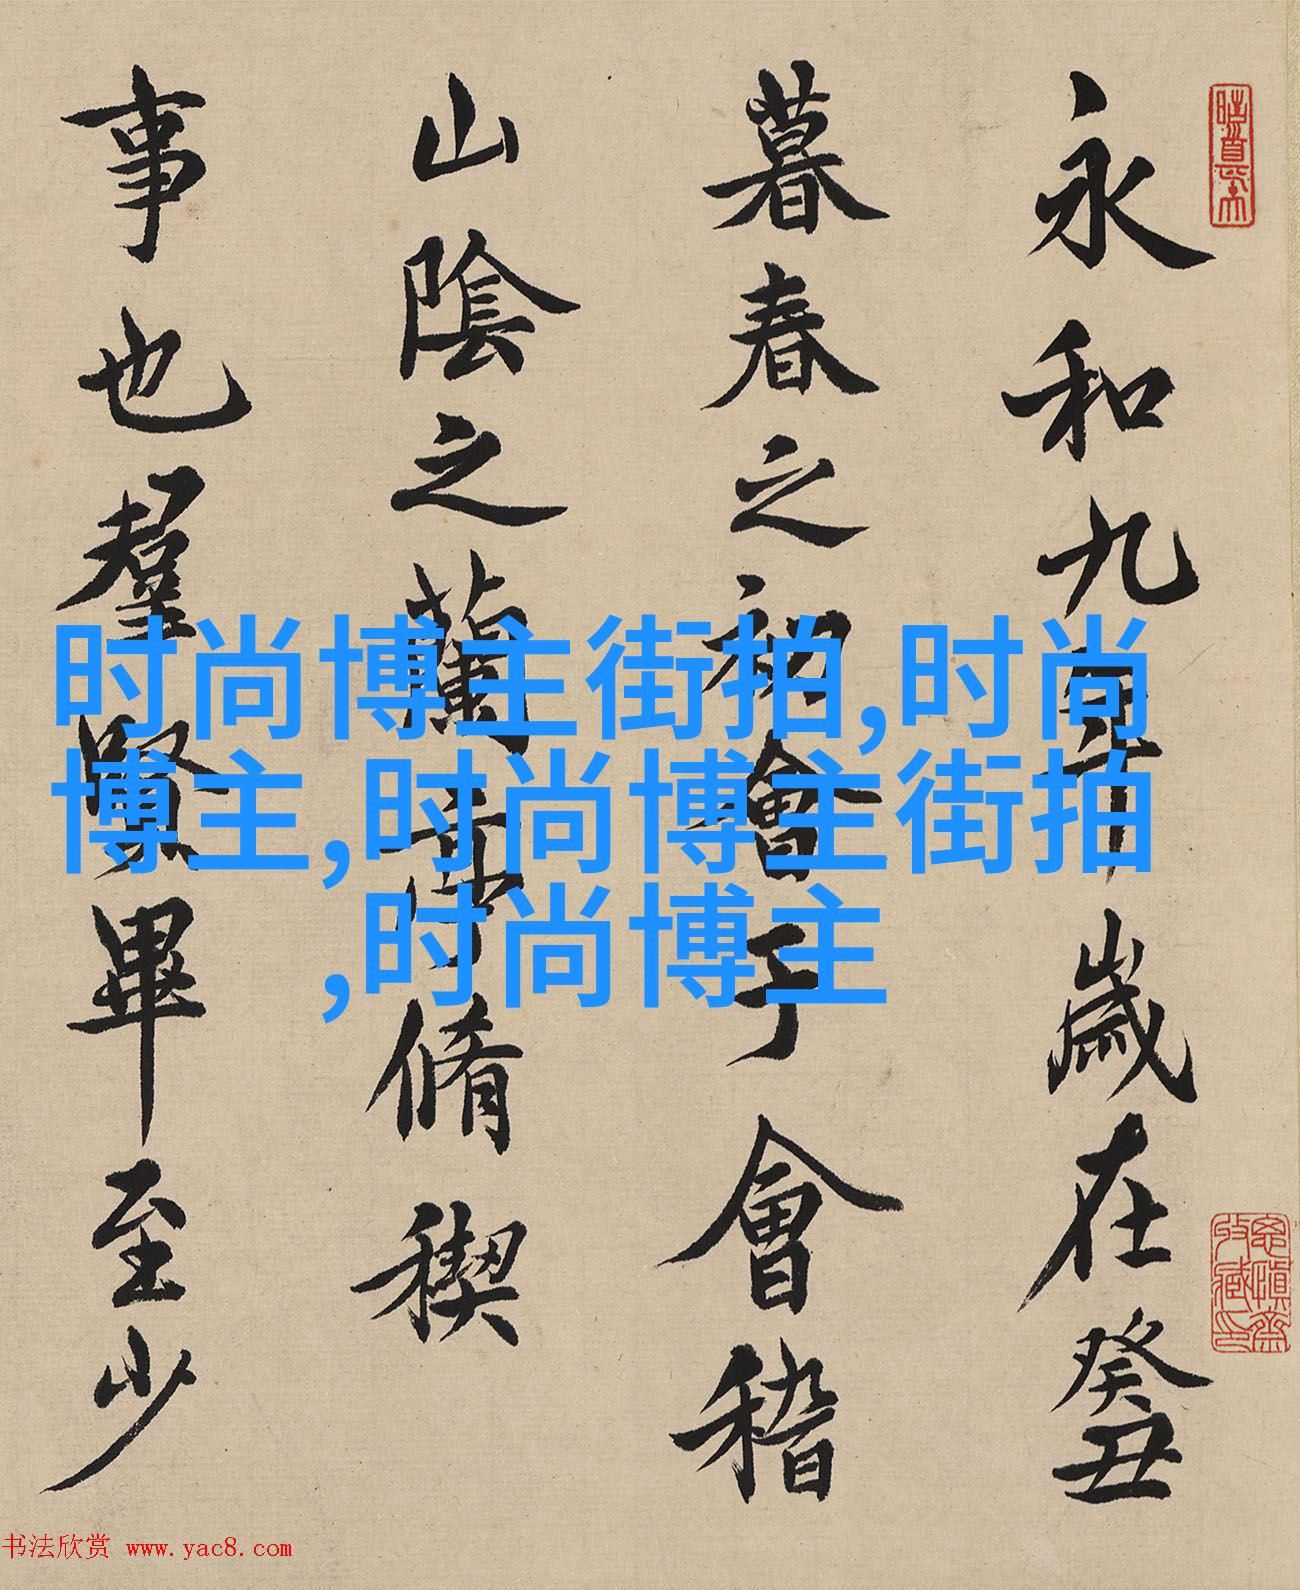 永和九年歲在癸丑
暮春之初會于會稽
山陰之蘭亭脩稧
事也羣賢畢至少
时尚博主街拍,时尚
博主,时尚博主街拍
,时尚博主
书法欣赏 www.yac8.com